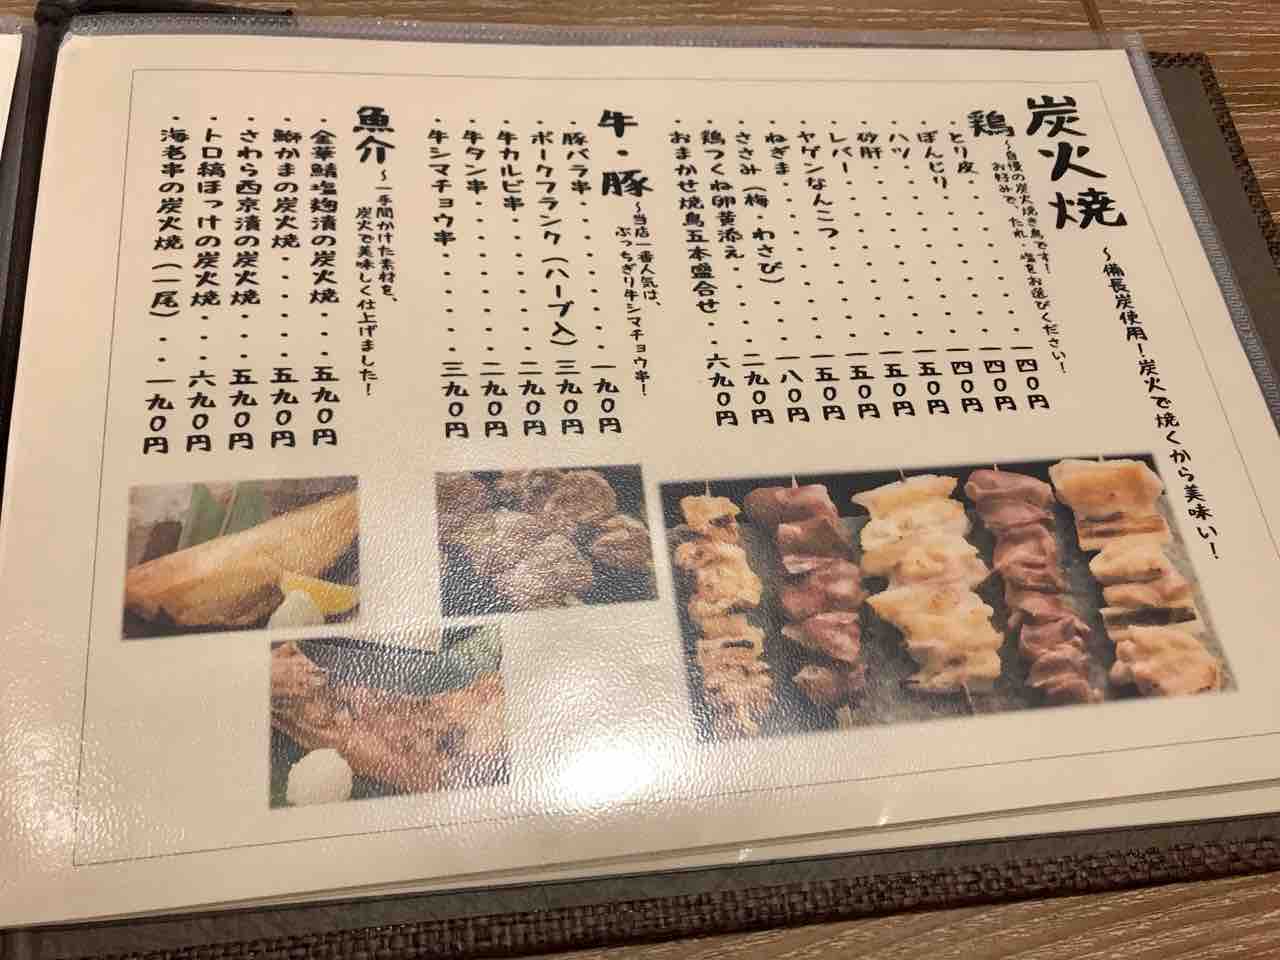 炭火焼 ～備長炭使用！炭火で焼くから美味い！
鶏 ～自慢の炭火焼き鳥です！
お好みで、たれ、塩をお選びください！
・とり皮・・・・・・一四〇円
・ぼんじり・・・・・一四〇円
・ハツ・・・・・・・一四〇円
・砂肝・・・・・・・一五〇円
・レバー・・・・・・一五〇円
・ヤゲンなんこつ・・・一五〇円
・ねぎま・・・・・・一五〇円
・ささみ（梅・わさび）・・一八〇円
・鶏つくね卵黄添え・・・二九〇円
・おまかせ焼鳥五本盛合せ・・六九〇円
牛・豚 ～当店一番人気は、
ぶっちぎり牛シマチョウ串！
・豚バラ串・・・・・・一九〇円
・ポークフランク（ハーブ入）三九〇円
・牛カルビ串・・・・・二九〇円
・牛タン串・・・・・・二九〇円
・牛シマチョウ串・・・・三九〇円
魚介 ～一手間かけた素材を、
炭火で美味しく仕上げました！
・金華鯖塩麹漬の炭火焼・・五九〇円
・鰤かまの炭火焼・・・・五九〇円
・さわら西京漬の炭火焼・・五九〇円
・トロ縞ほっけの炭火焼・・六九〇円
・海老串の炭火焼（一尾）・・一九〇円